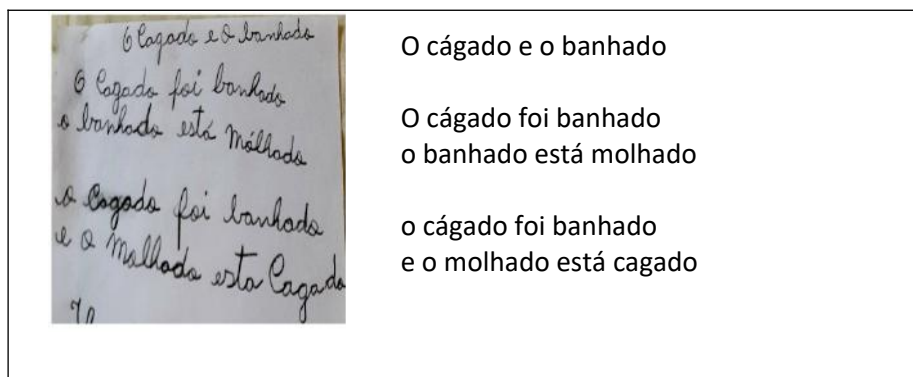 O Cagado e o banhado
O Cagado foi banhado
o banhado está Mólhado
o Cagado foi banhado
e o Molhado esta Cagado
O cágado e o banhado
O cágado foi banhado
o banhado está molhado
o cágado foi banhado
e o molhado está cagado